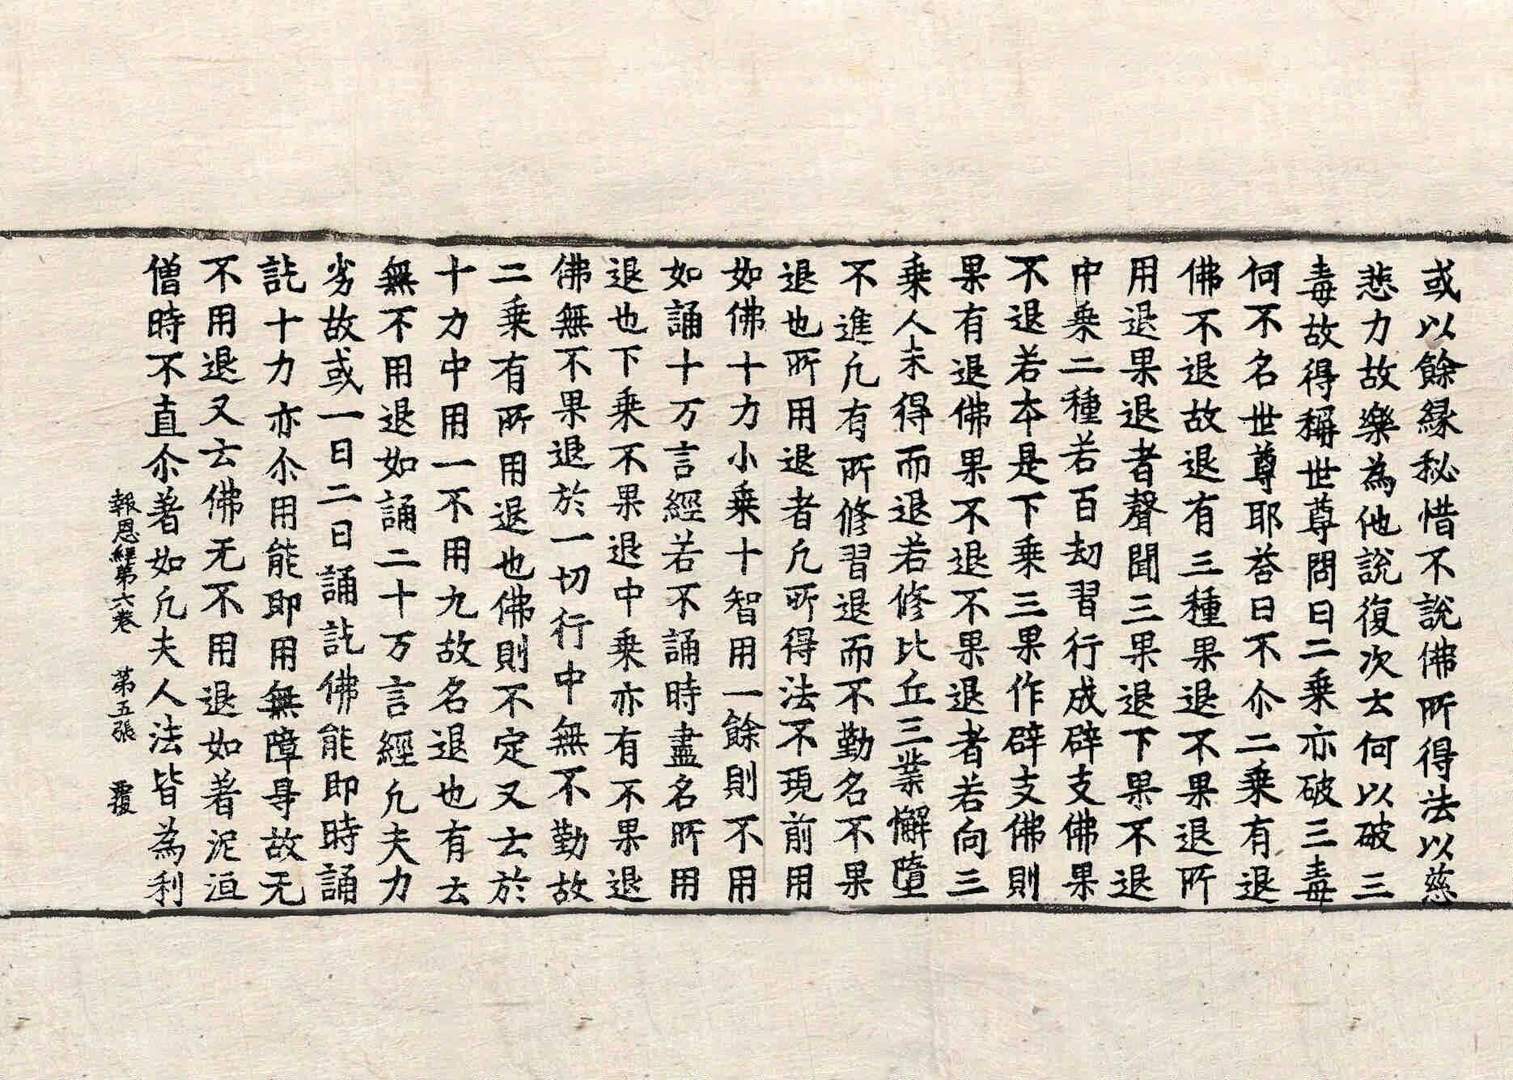 或以餘緣秘惜不說佛所得法以慈
悲力故樂為他說復次云何以破三
毒故得稱世尊問曰二乘亦破三毒
何不名世尊耶荅曰不尒二乘有退
佛不退故退有三種果退不果退所
用退果退者聲聞三果退下果不退
中乘二種若百劫習行成辟支佛果
不退若本是下乘三果作辟支佛則
果有退佛果不退不果退者若向三
乘人未得而退若修比丘三業懈墮
不進凡有所修習退而不勤名不果
退也所用退者凡所得法不現前用
如佛十力小乘十智用一餘則不用
如誦十万言經若不誦時盡名所用
退也下乘不果退中乘亦有不果退
佛無不果退於一切行中無不勤故
二乘有所用退也佛則不定又云於
十力中用一不用九故名退也有云
無不用退如誦二十万言經凡夫力
劣故或一日二日誦訖佛能即時誦
訖十力亦尒用能即用無障㝵故无
不用退又云佛无不用退如著泥洹
僧時不直尒著如凡夫人法皆為利
報恩經第六卷　第五張　覆